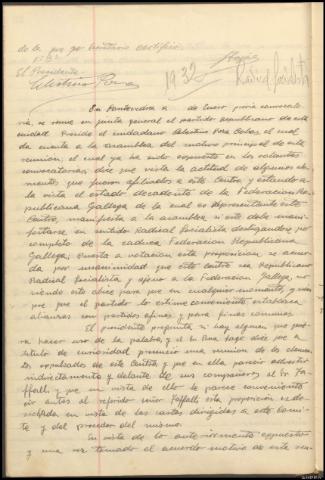 de lo que yo secretario certifico
Vº Bº
El Presidente
Celestino Poza
1932
En Pontevedra a de Enero previa convocato
ria, se reune en junta general el partido Republicano de esta
ciudad. Preside el ciudadano Celestino Poza Cobas el cual
da cuenta a la asamblea del motivo principal de esta
reunion, el cual ya ha sido expuesto en los volantes
convocatorias, dice que vista la actitud de algunos ele
mentos que fueron afiliados a este Centro y estando a
la vista el estado decadente de la Federacion Re
publicana Gallega de la cual es representante este
Centro, manifiesta a la asamblea si este debe mani
festarse en sentido Radical Socialista desligandose por
completo de la caduca Federacion Republicana
Gallega, puesta a votacion esta proposicion, se acuer
da por unanimidad que este Centro sea Republicano
Radical Socialista y ajeno a la Federacion Gallega, no
siendo esto obice para que en cualquier momento, y siem
pre que el partido lo estime conveniente, establezca
alianzas con partidos afines, y para fines comunes.
El presidente pregunta si hay alguien que quie
ra hacer uso de la palabra, y el Sr. dice que a
titulo de curiosidad presencio una reunion de los elemen
tos expulsados de este Centro y que en ella parecio advertir
indirectamente y delante de sus compañeros al Sr.
Poffall, y que en vista de ello le parece conveniente
oir antes al referido señor Poffall, esta proposicion es de
sechada en vista de las cartas dirigidas a este Comi
te y del proceder del mismo.
En vista de lo anteriormente expuesto
y una vez tomado el acuerdo motivo de esta reu